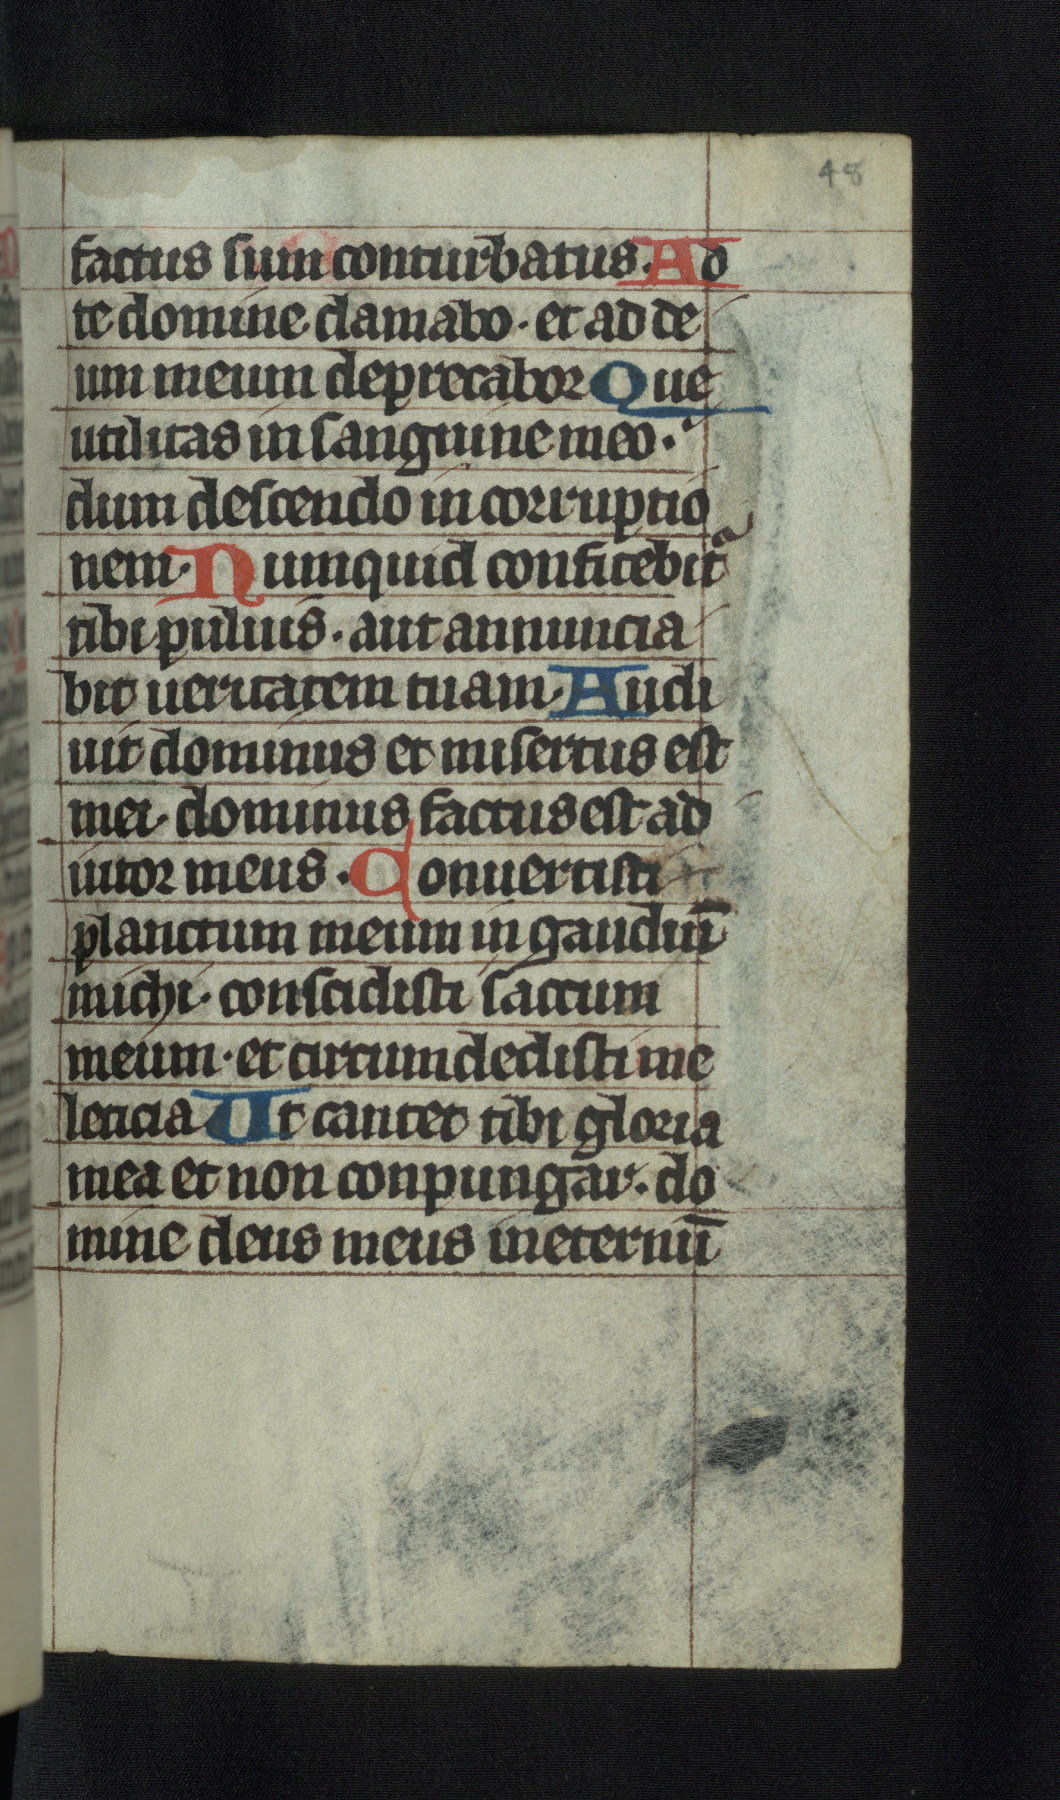 48
factus sum conturbatus. Ad
te domine clamabo. et ad de
um meum deprecabor Que
utilitas in sanguine meo.
dum descendo in corruptio
nem. Numquid confitebit᷑
tibi puluis. aut annuncia
bit ueritatem tuam. Audi
uit dominus et misertus est
mei. dominus factus est ad
iutor meus. Conuertisti
planctum meum in gaudiū
michi. conscidisti saccum
meum. et circumdedisti me
leticia Ut cantet tibi gloria
mea et non conpungar. do
mine deus meus in eternū